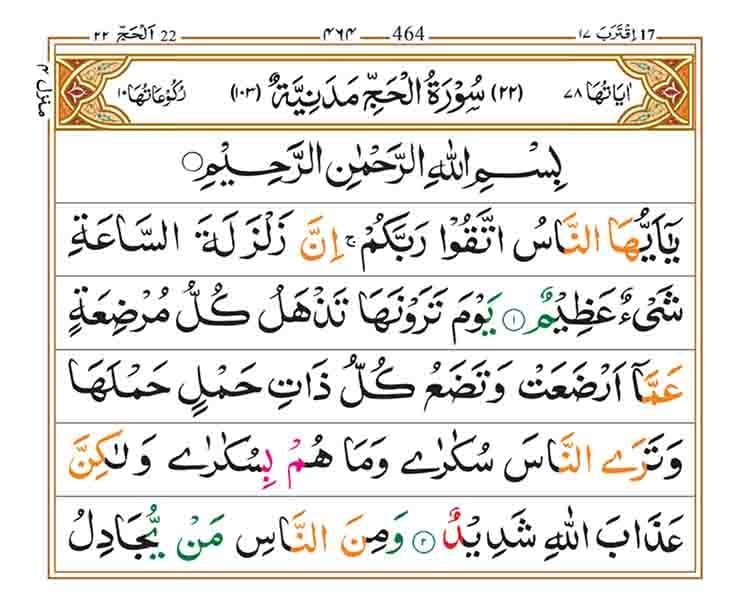 22 اَلْحَجّ ٢٢ ۴۶۴ 464 17 اِقْتَرَبَ ١٧
منزل ۴
اٰيَاتُهَا ٧٨ (٢٢) سُوْرَةُ الْحَجِّ مَدَنِيَّةٌ (١٠٣) رُكُوْعَاتُهَا ١٠
بِسْمِ اللّٰهِ الرَّحْمٰنِ الرَّحِيْمِ
يٰۤاَيُّهَا النَّاسُ اتَّقُوْا رَبَّكُمْ ۚ اِنَّ زَلْزَلَةَ السَّاعَةِ
شَيْءٌ عَظِيْمٌ ١ يَوْمَ تَرَوْنَهَا تَذْهَلُ كُلُّ مُرْضِعَةٍ
عَمَّاۤ اَرْضَعَتْ وَتَضَعُ كُلُّ ذَاتِ حَمْلٍ حَمْلَهَا
وَتَرَى النَّاسَ سُكَارٰى وَمَا هُمْ بِسُكَارٰى وَلٰكِنَّ
عَذَابَ اللّٰهِ شَدِيْدٌ ٢ وَمِنَ النَّاسِ مَنْ يُّجَادِلُ